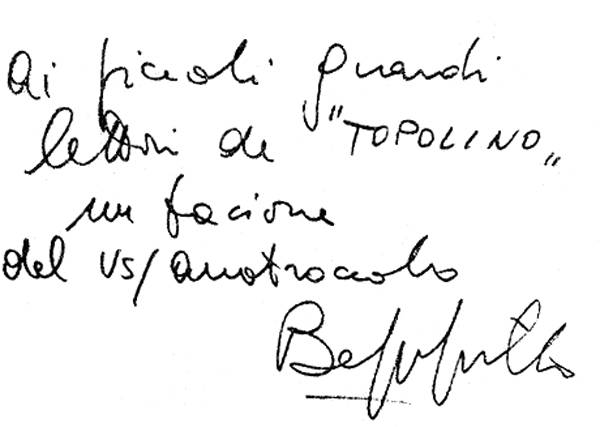 Ai piccoli grandi
lettori de "TOPOLINO"
un bacione
del vs/ anatroccolo